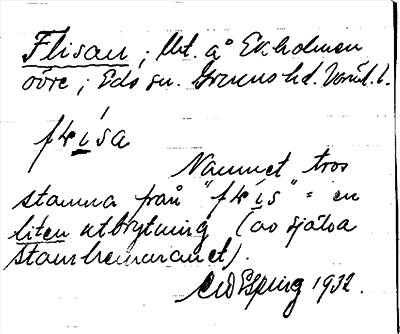 Flisan ; lht. å Ekholmen
övre ; Eds sn. Grums hd. Värml. l.
flísa
Namnet tros
stamma från "flis" = en
liten utbrytning (av själva
stamhemmanet).
Esping 1932.